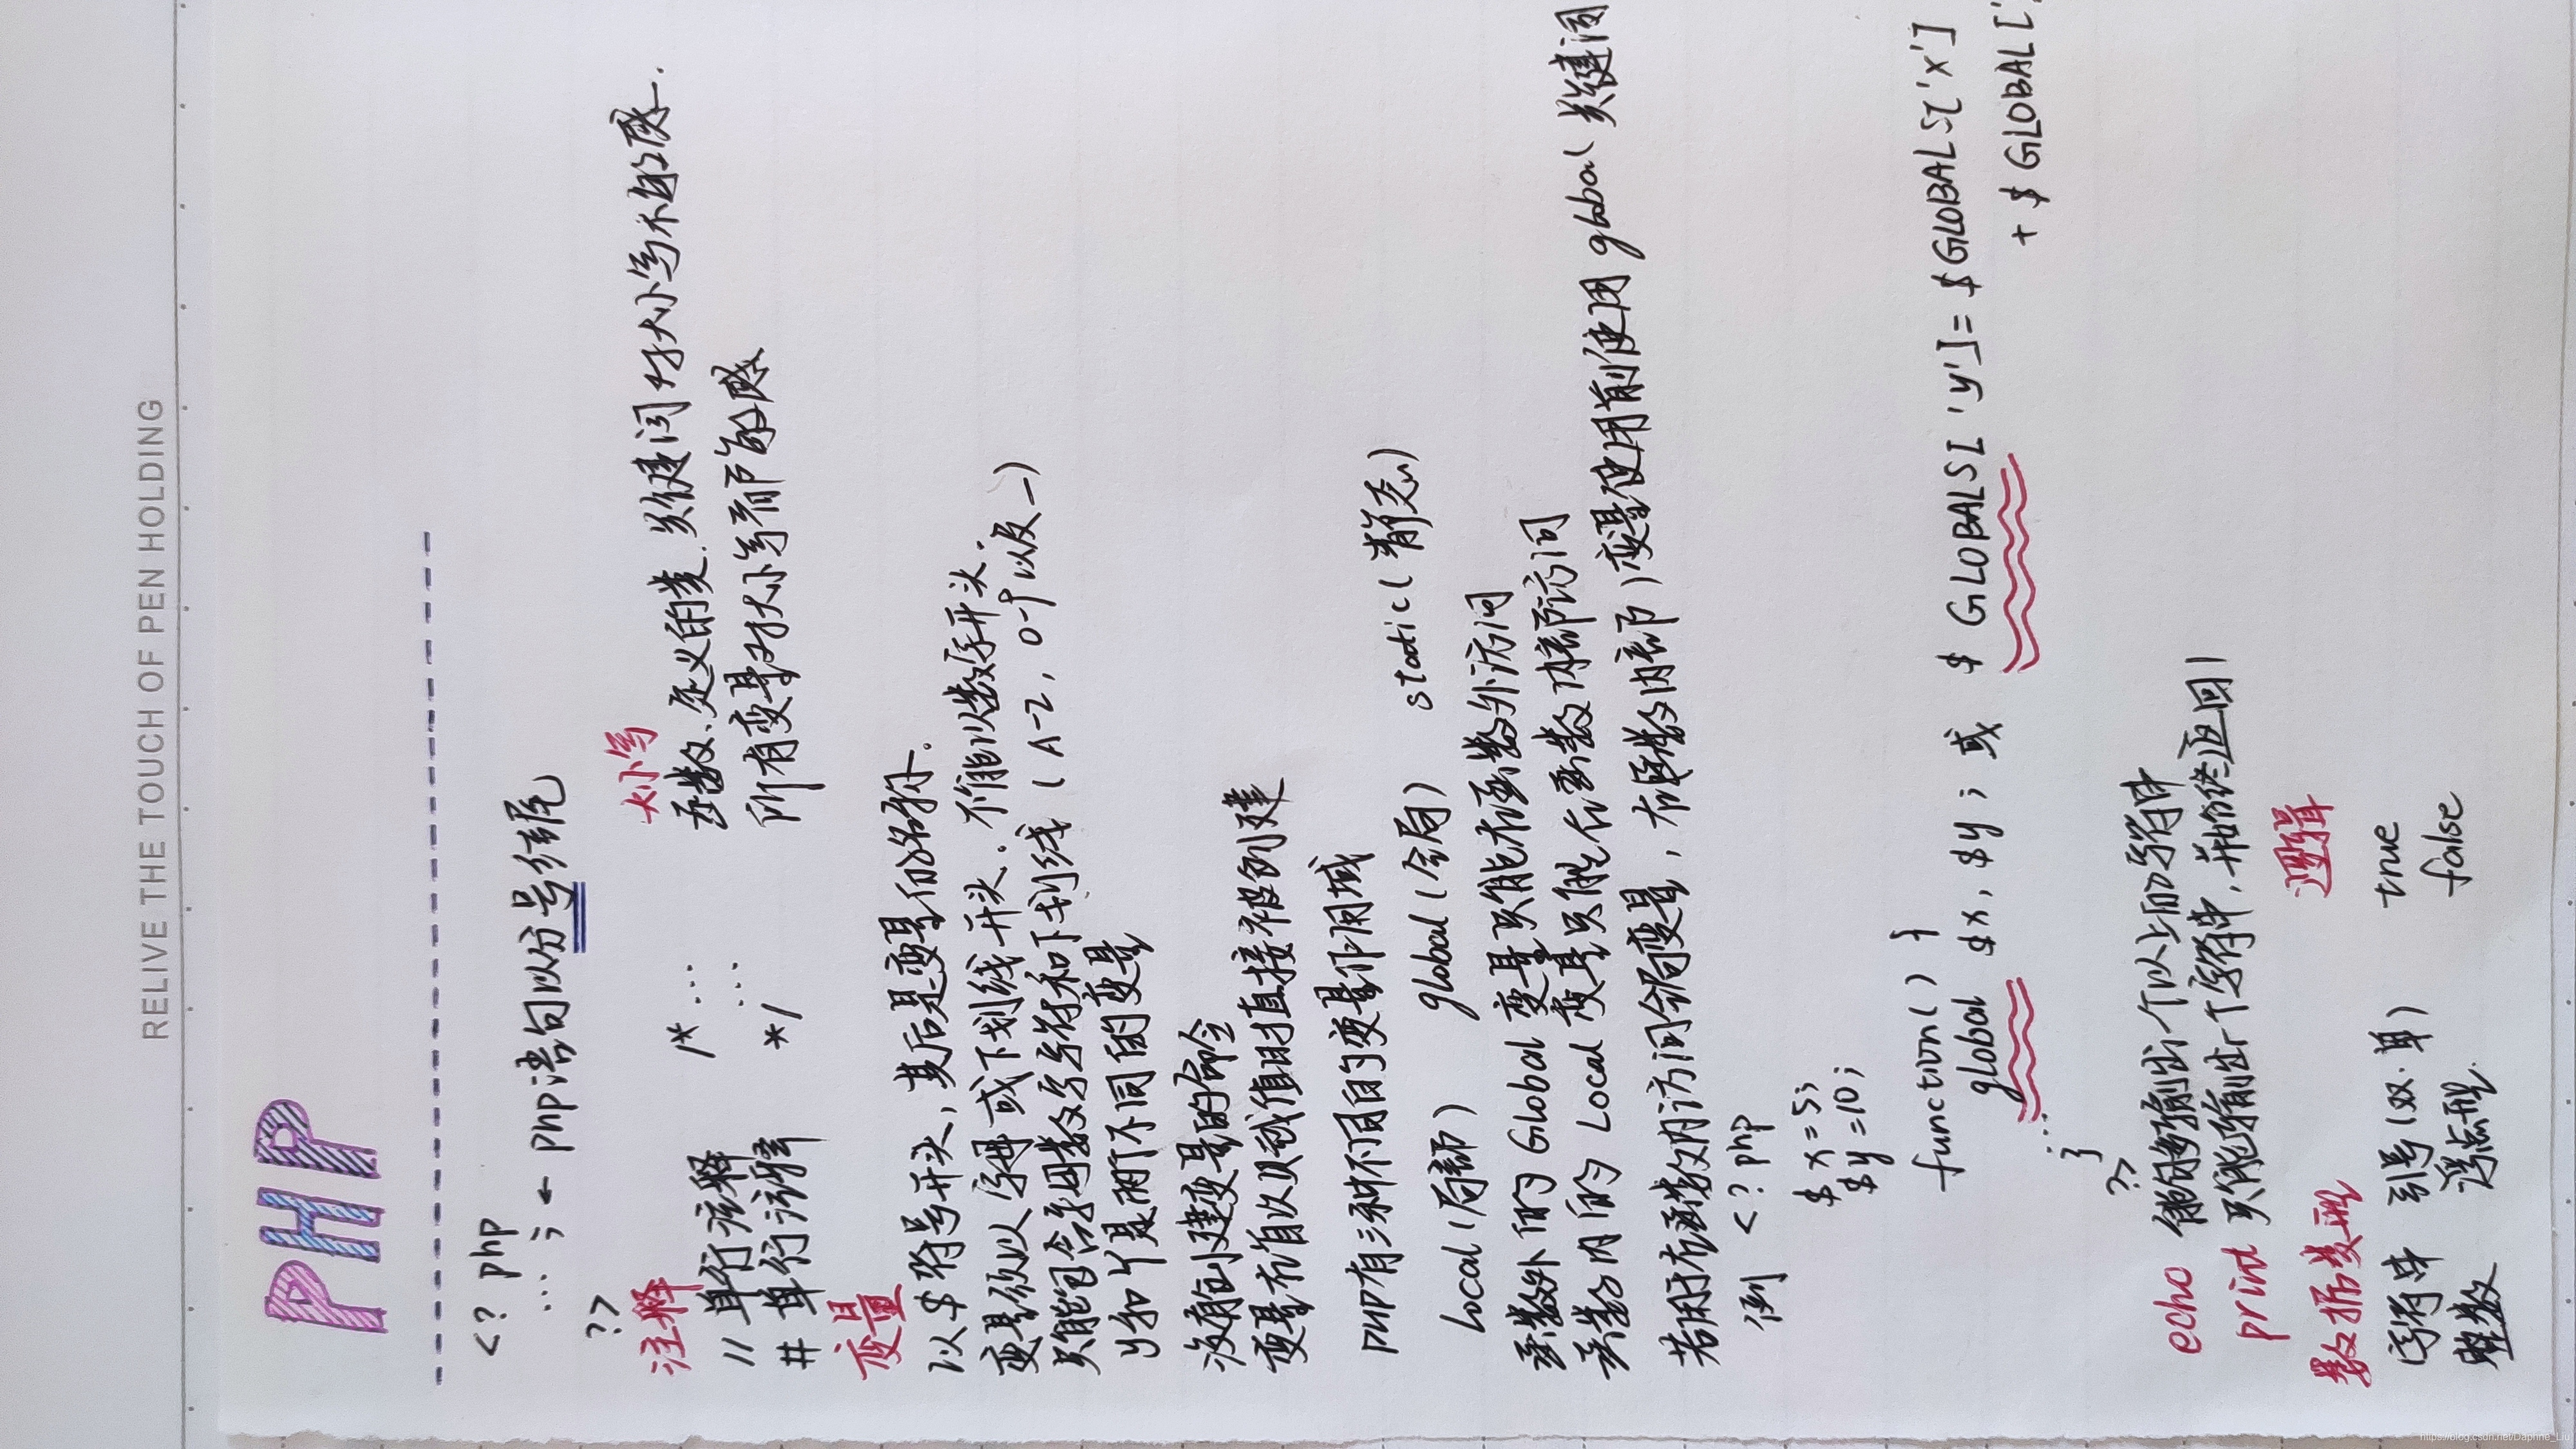 RELIVE THE TOUCH OF PEN HOLDING
PHP
<? php
... ; ← php语句以分号结尾
?>
注释
// 单行注释
# 单行注释
/* ...
...
*/
大小写
函数、定义的类、关键词对大小写不敏感.
所有变量对大小写都敏感
变量
以 $ 符号开头, 其后是变量的名称.
变量须以字母或下划线开头. 不能以数字开头.
只能包含字母数字字符和下划线 (A-Z, 0-9 以及 _)
y和Y是两个不同的变量
没有创建变量的命令
变量在首次赋值时直接被创建
PHP有三种不同的变量作用域
Local (局部) global (全局) static (静态)
函数外的 Global 变量只能在函数外访问
函数内的 Local 变量只能在函数内部访问
若用于在函数内访问全局变量, 在(函数内部) 变量使用前使用 global 关键词
例 <? php
$ x = 5;
$ y = 10;
function ( ) }
global $x, $y ; 或 $ GLOBALS['y'] = $ GLOBALS['x']
+ $ GLOBAL['
...
}
?>
echo 能够输出一个以上的字符串
print 只能输出一个字符串, 并始终返回1
数据类型
字符串 引号 (双. 单) 逻辑 true
整数 浮点型 false
https://blog.csdn.net/Daphne_Liu